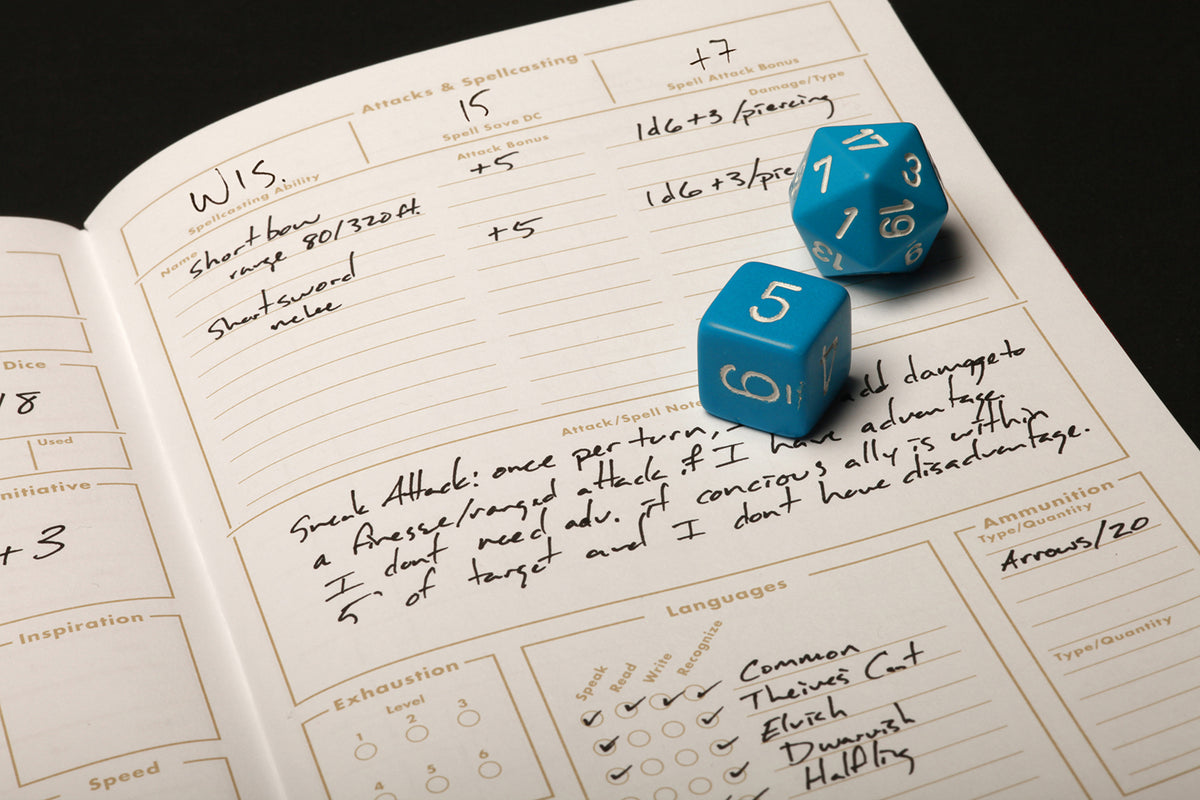 Attacks & Spellcasting
WIS.
Spellcasting Ability
15
Spell Save DC
+7
Spell Attack Bonus
Name
Attack Bonus
Damage/Type
Shortbow
range 80/320ft.
+5
1d6+3/piercing
Shortsword
melee
+5
1d6+3/pie
17
7
3
1
19
13
9
5
6
Attack/Spell Note
Sneak Attack: once per turn, add damage to
a finesse/ranged attack if I have advantage.
I dont need adv. if concious ally is within
5' of target and I dont have disadvantage.
Dice
18
Used
nitiative
+3
Inspiration
Speed
Exhaustion
Level
1
2
3
4
5
6
Languages
Speak
Read
Write
Recognize
Common
Theives Cant
Elvish
Dwarvish
Halfling
Ammunition
Type/Quantity
Arrows/20
Type/Quantity